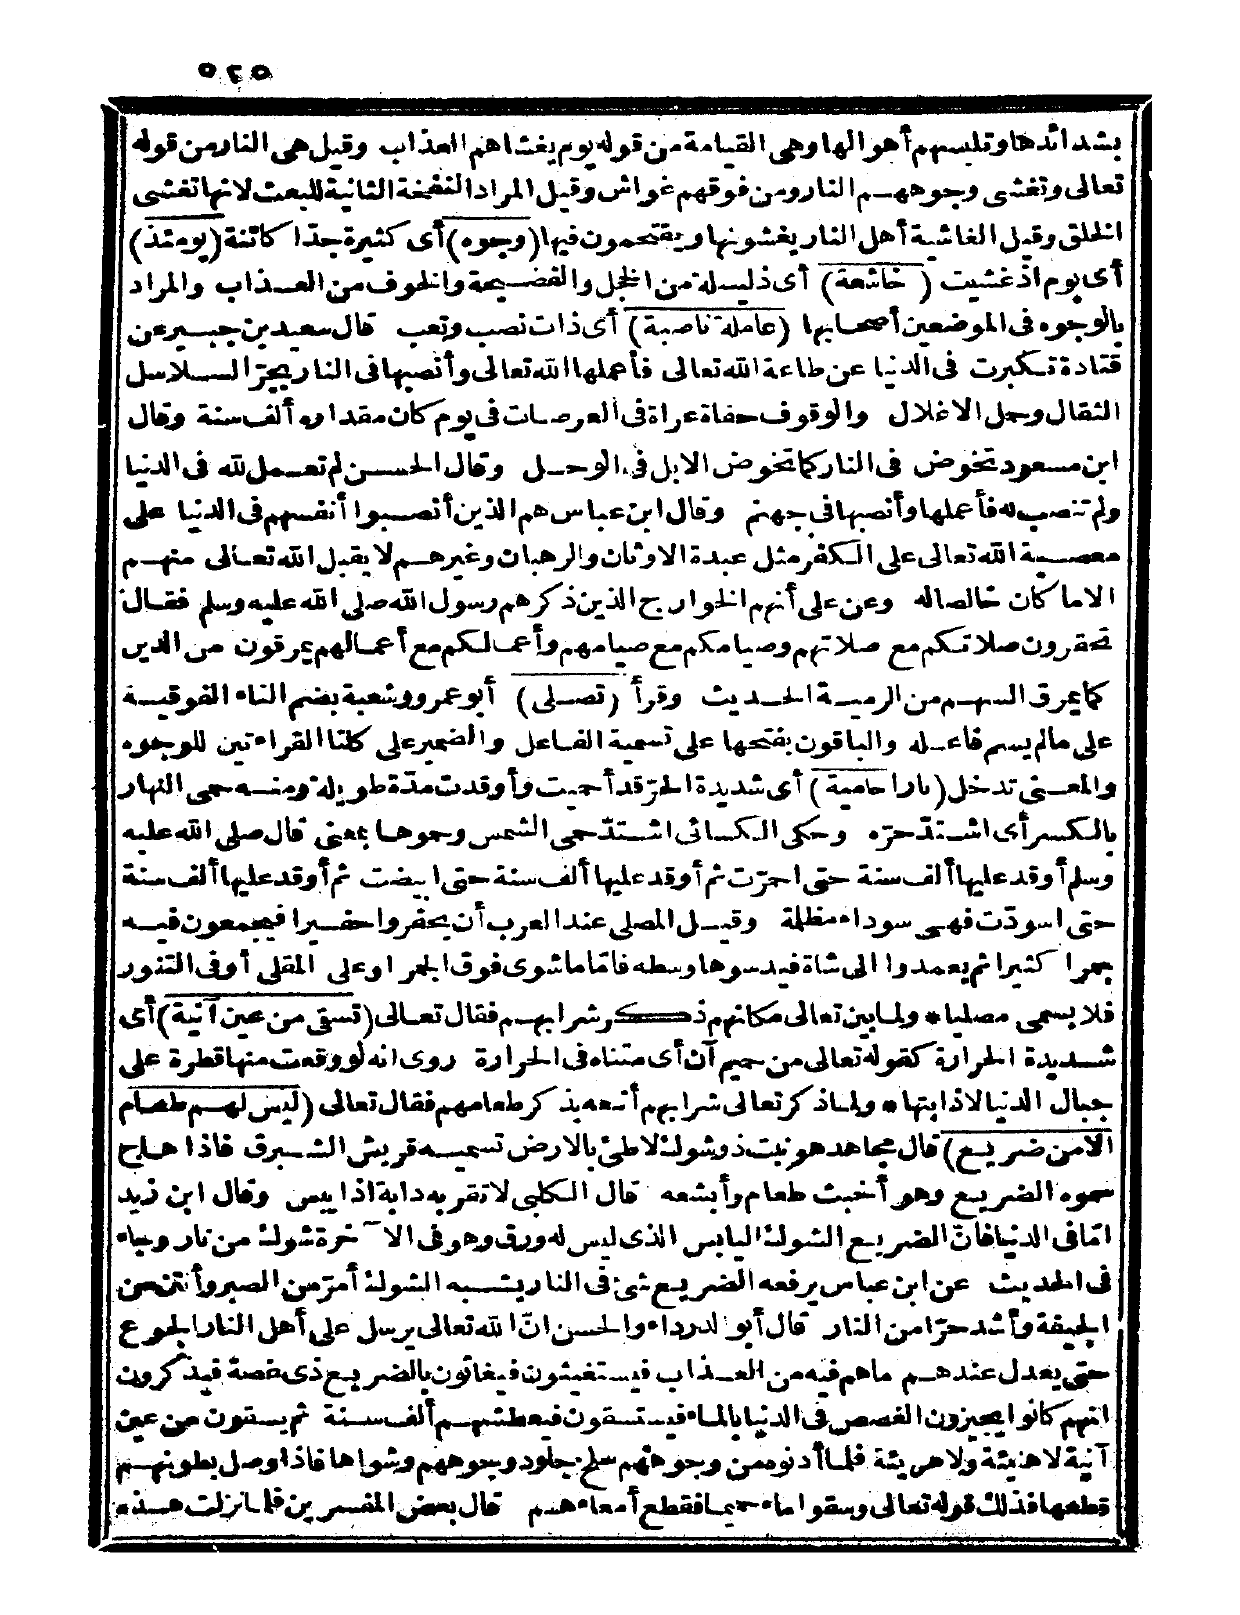 ٥٢٥
بشدائدها وتلبسهم أهوالها وهى القيامة من قوله يوم يغشاهم العذاب وقيل هى النار من قوله
تعالى وتغشى وجوههم النار ومن فوقهم غواش وقيل المراد النفخة الثانية للبعث لانها تغشى
الخلق وقيل الغاشية أهل النار يغشونها ويقتحمون فيها (وجوه) أى كثيرة جدّا كائنة (يومئذ)
أى يوم اذ غشيت (خاشعة) أى ذليلة من الخجل والفضيحة والخوف من العذاب والمراد
بالوجوه فى الموضعين أصحابها (عاملة ناصبة) أى ذات نصب وتعب قال سعيد بن جبير عن
قتادة تكبرت فى الدنيا عن طاعة الله تعالى فأعملها الله تعالى وأنصبها فى النار بجرّ السلاسل
الثقال وحمل الاغلال والوقوف حفاة عراة فى العرصات فى يوم كان مقداره ألف سنة وقال
ابن مسعود تخوض فى النار كما تخوض الابل فى الوحل وقال الحسن لم تعمل لله فى الدنيا
ولم تنصب له فأعملها وأنصبها فى جهنم وقال ابن عباس هم الذين أنصبوا أنفسهم فى الدنيا على
معصية الله تعالى على الكفر مثل عبدة الاوثان والرهبان وغيرهم لا يقبل الله تعالى منهم
الا ما كان خالصا له وعن على أنهم الخوارج الذين ذكرهم رسول الله صلى الله عليه وسلم فقال
تحقرون صلاتكم مع صلاتهم وصيامكم مع صيامهم وأعمالكم مع أعمالهم يمرقون من الدين
كما يمرق السهم من الرمية الحديث وقرأ (تصلى) أبو عمرو وشعبة بضم التاء الفوقية
على ما لم يسم فاعله والباقون بفتحها على تسمية الفاعل والضمير على كلتا القراءتين للوجوه
والمعنى تدخل (نارا حامية) أى شديدة الحرّ قد أحميت وأوقدت مدّة طويلة ومنه حمى النهار
بالكسر أى اشتدّ حرّه وحكى الكسائى اشتدّ حمى الشمس وحموها بمعنى قال صلى الله عليه
وسلم أوقد عليها ألف سنة حتى احمرّت ثم أوقد عليها ألف سنة حتى ابيضت ثم أوقد عليها ألف سنة
حتى اسودّت فهى سوداء مظلمة وقيل المصلى عند العرب أن يحفروا حفيرا فيجمعون فيه
جمرا كثيرا ثم يعمدوا الى شاة فيدسوها وسطه فامّا ما شوى فوق الجمر او على المقلى أو فى التنور
فلا يسمى مصليا * ولما بين تعالى مكانهم ذكر شرابهم فقال تعالى (تسقى من عين آنية) أى
شديدة الحرارة كقوله تعالى من حميم آن أى متناه فى الحرارة روى انه لو وقعت منها قطرة على
جبال الدنيا لاذابتها * ولما ذكر تعالى شرابهم أتبعه بذكر طعامهم فقال تعالى (ليس لهم طعام
الا من ضريع) قال مجاهد هو نبت ذو شوك لاطئ بالارض تسميه قريش الشبرق فاذا هاج
سموه الضريع وهو أخبث طعام وأبشعه قال الكلبى لا تقربه دابة اذا يبس وقال ابن زيد
امّا فى الدنيا فانّ الضريع الشوك اليابس الذى ليس له ورق وهو فى الآخرة شوك من نار وجاء
فى الحديث عن ابن عباس يرفعه الضريع شئ فى النار يشبه الشوك أمرّ من الصبر وأنتن من
الجيفة وأشد حرّا من النار قال أبو الدرداء والحسن انّ الله تعالى يرسل على أهل النار الجوع
حتى يعدل عندهم ما هم فيه من العذاب فيستغيثون فيغاثون بالضريع ذى غصة فيذكرون
انهم كانوا يجيزون الغصص فى الدنيا بالماء فيستسقون فيعطشهم ألف سنة ثم يسقون من عين
آنية لا هنيئة ولا مريئة فلما أدنوه من وجوههم سلخ جلود وجوههم وشواها فاذا وصل بطونهم
قطعها فذلك قوله تعالى وسقوا ماء حميما فقطع أمعاءهم قال بعض المفسرين فلما نزلت هذه